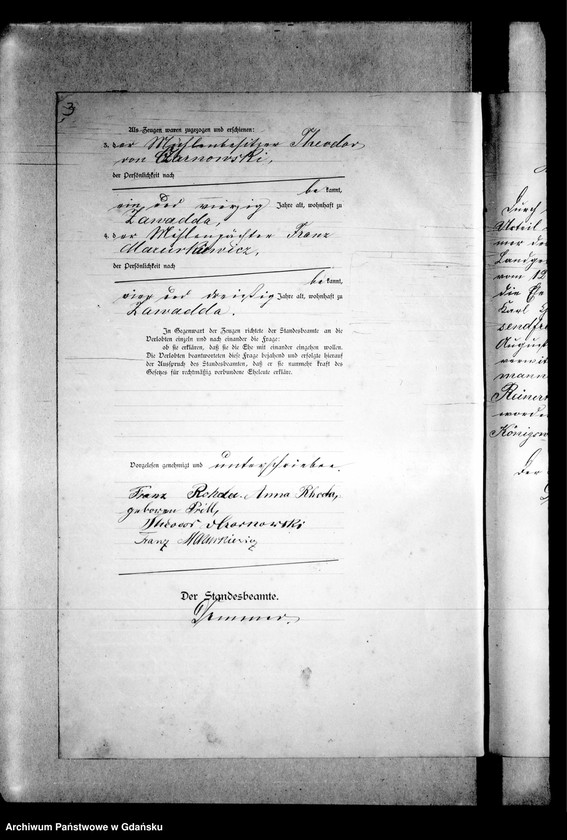 3
Als Zeugen waren zugezogen und erschienen:
3. der Mühlenbesitzer Theodor
von Czarnowski,
der Persönlichkeit nach
be kannt,
ein und vierzig Jahre alt, wohnhaft zu
Zawadda,
4. der Mühlenpächter Franz
Mazurkiewicz,
der Persönlichkeit nach
be kannt,
vier und dreißig Jahre alt, wohnhaft zu
Zawadda.
In Gegenwart der Zeugen richtete der Standesbeamte an die
Verlobten einzeln und nach einander die Frage:
ob sie erklären, daß sie die Ehe mit einander eingehen wollen.
Die Verlobten beantworteten diese Frage bejahend und erfolgte hierauf
der Ausspruch des Standesbeamten, daß er sie nunmehr kraft des
Gesetzes für rechtmäßig verbundene Eheleute erkläre.
Vorgelesen genehmigt und unterschrieben.
Franz Rohda. Anna Rhoda,
geboren Prill,
Theodor Czarnowski
Franz Mazurkiewicz
Der Standesbeamte.
Durch
Urteil
mer de
Landge
vom 12
die Ehe
Karl
August
verwit
mann
Reiner
worde
Königsw
Der
Archiwum Państwowe w Gdańsku